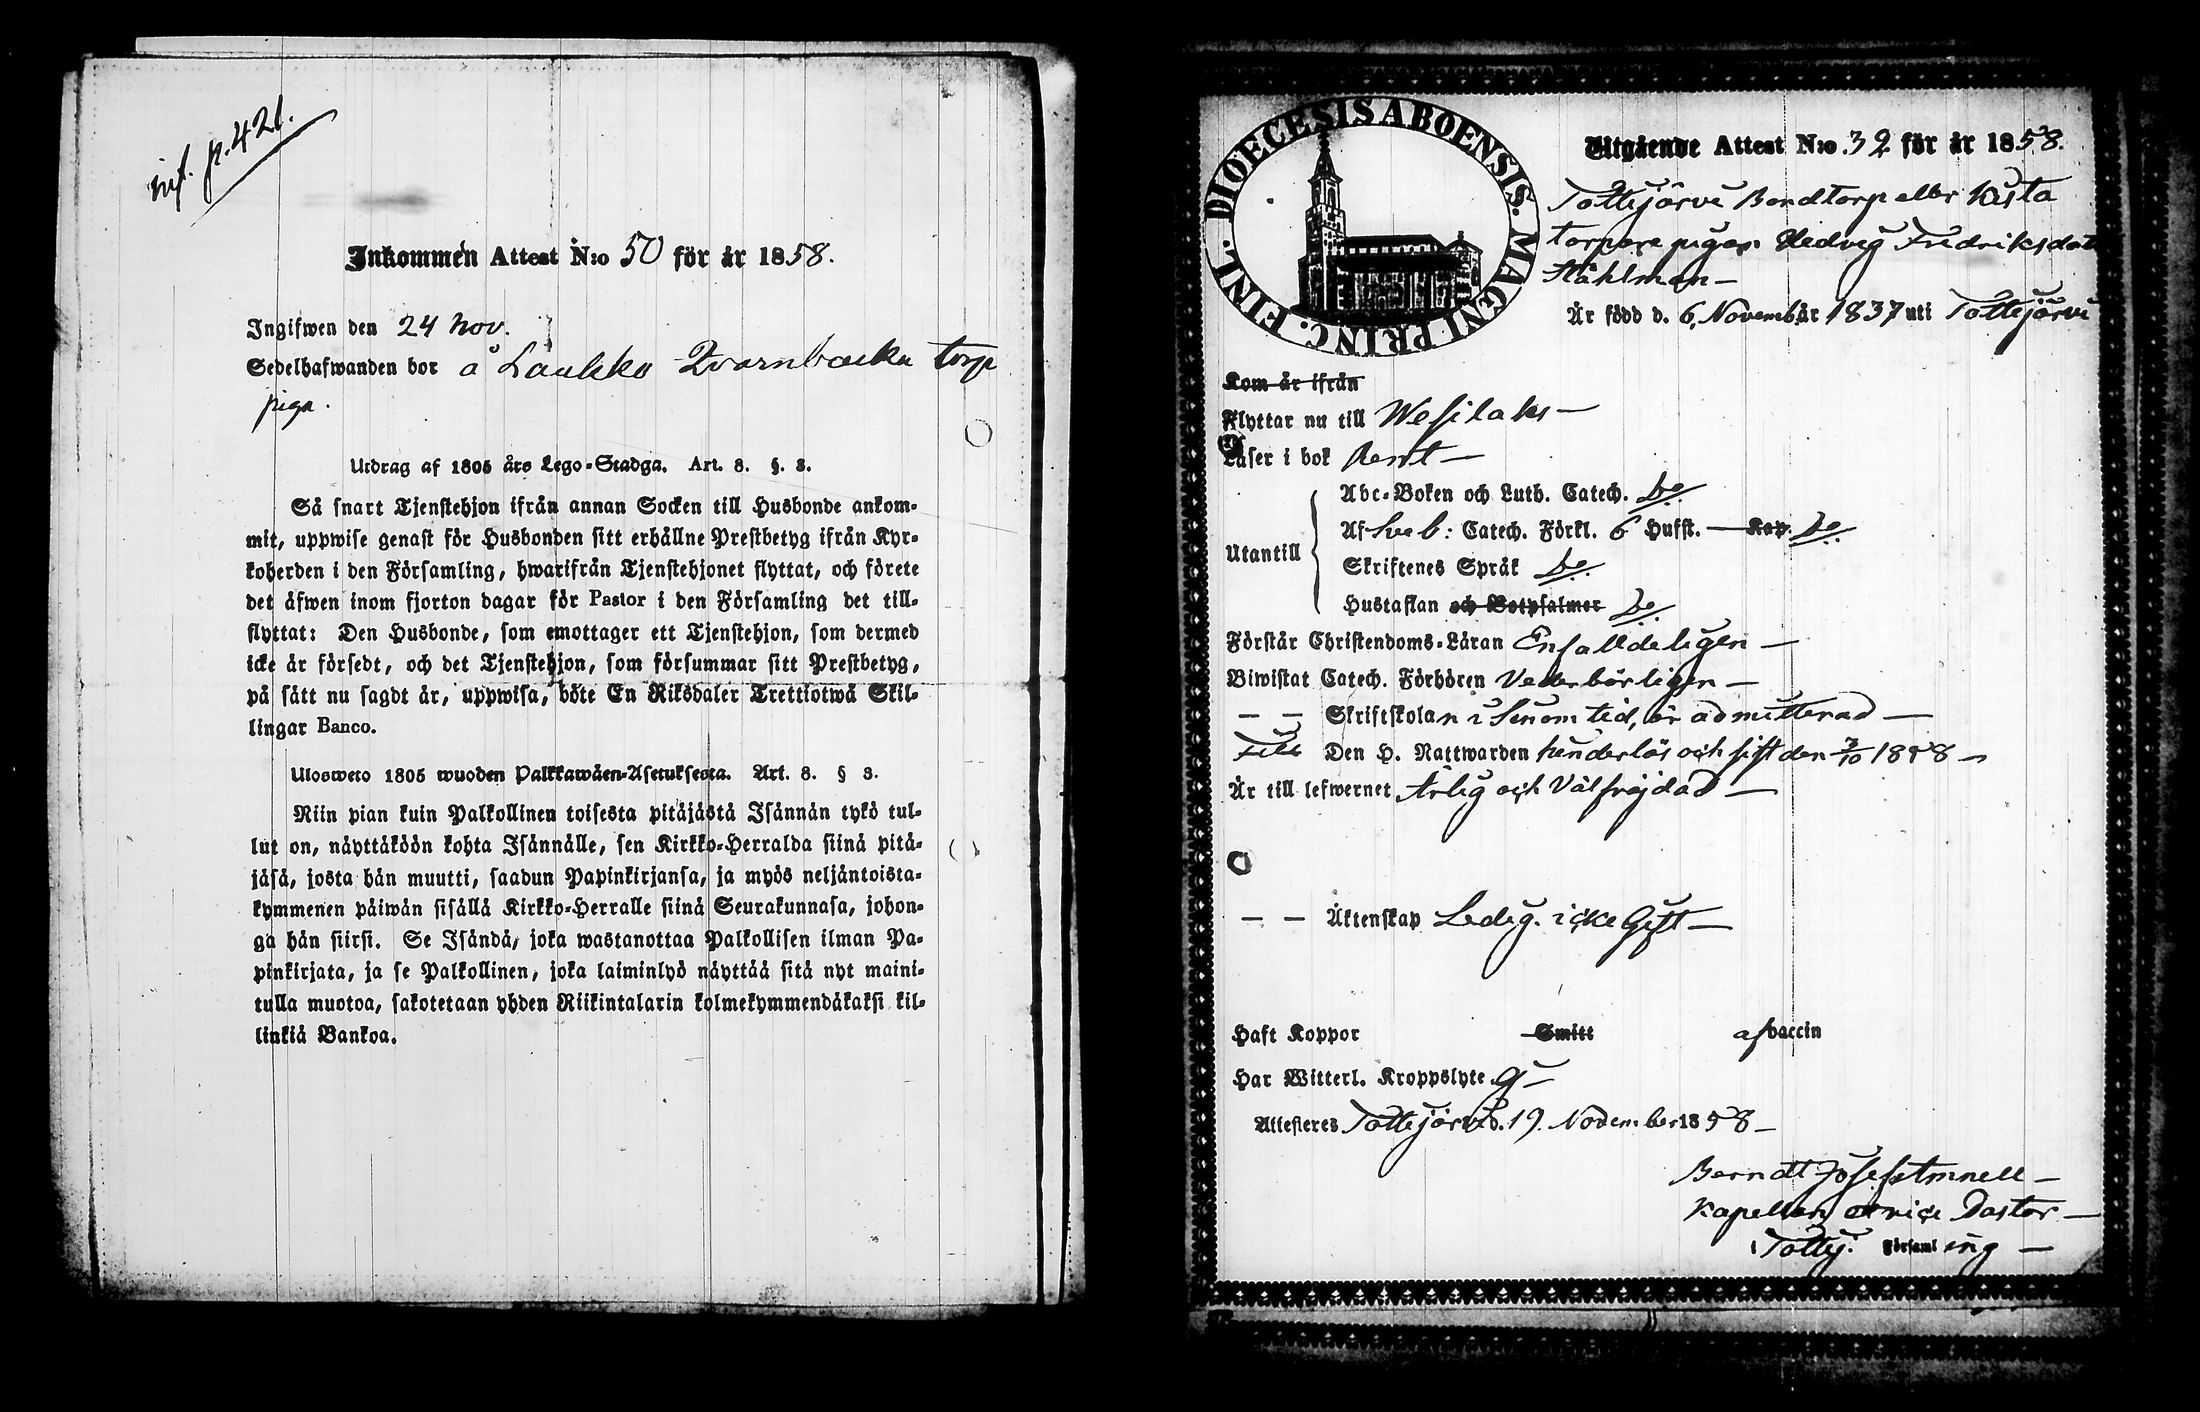 inf. p. 421.
Inkommen Attest N:o 50 för år 1858.
Ingifwen den 24 Nov.
Sedelhafwanden bor å Laukko Qvarnbacka torp
piga.
Utdrag af 1805 års Lego-Stadga. Art. 8. §. 3.
Så snart Tjenstehjon ifrån annan Socken till Husbonde ankom-
mit, uppwise genast för Husbonden sitt erhållne Prestbetyg ifrån Kyr-
koherden i den Församling, hwarifrån Tjenstehjonet flyttat, och förete
det äfwen inom fjorton dagar för Pastor i den Församling det till-
flyttat: Den Husbonde, som emottager ett Tjenstehjon, som dermed
icke är försedt, och det Tjenstehjon, som försummar sitt Prestbetyg,
på sätt nu sagdt är, uppwisa, böte En Riksdaler Trettiotwå Skil-
lingar Banco.
Ulosweto 1805 wuoden Palkkawäen-Asetuksesta. Art. 8. § 3.
Niin pian kuin Palkollinen toisesta pitäjästä Isännän tykö tul-
lut on, näyttäköön kohta Isännälle, sen Kirkko-Herralda siinä pitä-
jäsä, josta hän muutti, saadun Papinkirjansa, ja myös neljäntoista-
kymmenen päiwän sisällä Kirkko-Herralle siinä Seurakunnasa, johon-
ga hän siirsi. Se Isändä, joka wastanottaa Palkollisen ilman Pa-
pinkirjata, ja se Palkollinen, joka laiminlyö näyttää sitä nyt maini-
tulla muotoa, sakotetaan yhden Riikintalarin kolmekymmendäkaksi kil-
linkiä Bankoa.
DIOECESIS ABOENSIS. MAGNI PRINC. FINL.
Utgående Attest N:o 32 för år 1858.
Tottijärvi Bondtorp eller Kusta
torpare pigan Hedvig Fredriksdot
Ståhlman —
Är född d. 6. Novemb. år 1837 uti Tottijärvi
Kom är ifrån
Flyttar nu till Wesilaks —
Läser i bok Rent —
Utantill
Abc-Boken och Luth. Catech. be
Af Sveb: Catech. Förkl. 6 Hufst. — Kap. be
Skriftenes Språk be
Hustaflan och Botpsalmer be
Förstår Christendoms-Läran Enfalldeligen —
Biwistat Catech. Förhören Vederbörligen —
— — Skriftskolan i sinom tid, är admitterad —
Den H. Nattwarden hinderlös och sist den 3/10 1858 —
Är till lefwernet Ärlig och Välfrejdad —
— — Äktenskap Ledig. icke Gift —
Haft Koppor Smitt af vaccin
Har Witterl. Kroppslyte Ej —
Attesteres Tottijärvi d. 19. November 1858 —
Kapellan o. vice Pastor —
i Tottij. Församling —